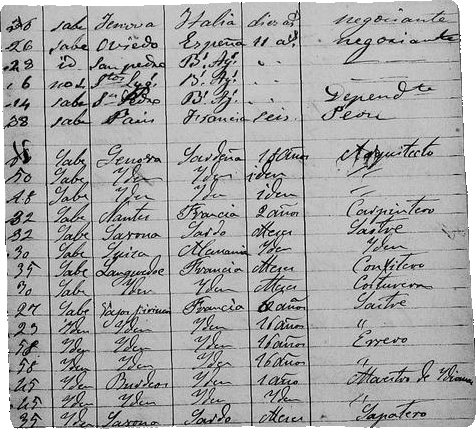 36 sabe Jenova Italia diez as negociante
26 sabe Oviedo España 11 as negociante
28 id San pedro Bs. As. "
16 no s. Bs. As. "
14 sabe Sn Pedro Bs. As. " Dependte
38 sabe Pais Francia seis " Peon
Sabe Genova Sardeña 18 años Arquitecto
50 Sabe Yden Yden iden "
48 Sabe Yden Yden iden "
32 Sabe Nantes Francia 2 años Carpintero
32 Sabe Savona Sardo Meses Sastre
30 Sabe Suiza Alemania Yden Yden
35 Sabe Languedoc Francia Meses Confitero
30 Sabe Yden Yden Meses Costurera
27 Sabe Francia años Sastre
23 Yden Yden Yden 16 años "
58 Yden Yden Yden 16 años Errero
58 Yden Yden Yden 16 años "
45 Yden Burdeos Yden 1 año Maestro de Ydiomas
45 Yden Yden Yden Yden "
35 Yden Savona Sardo Meses Sapatero